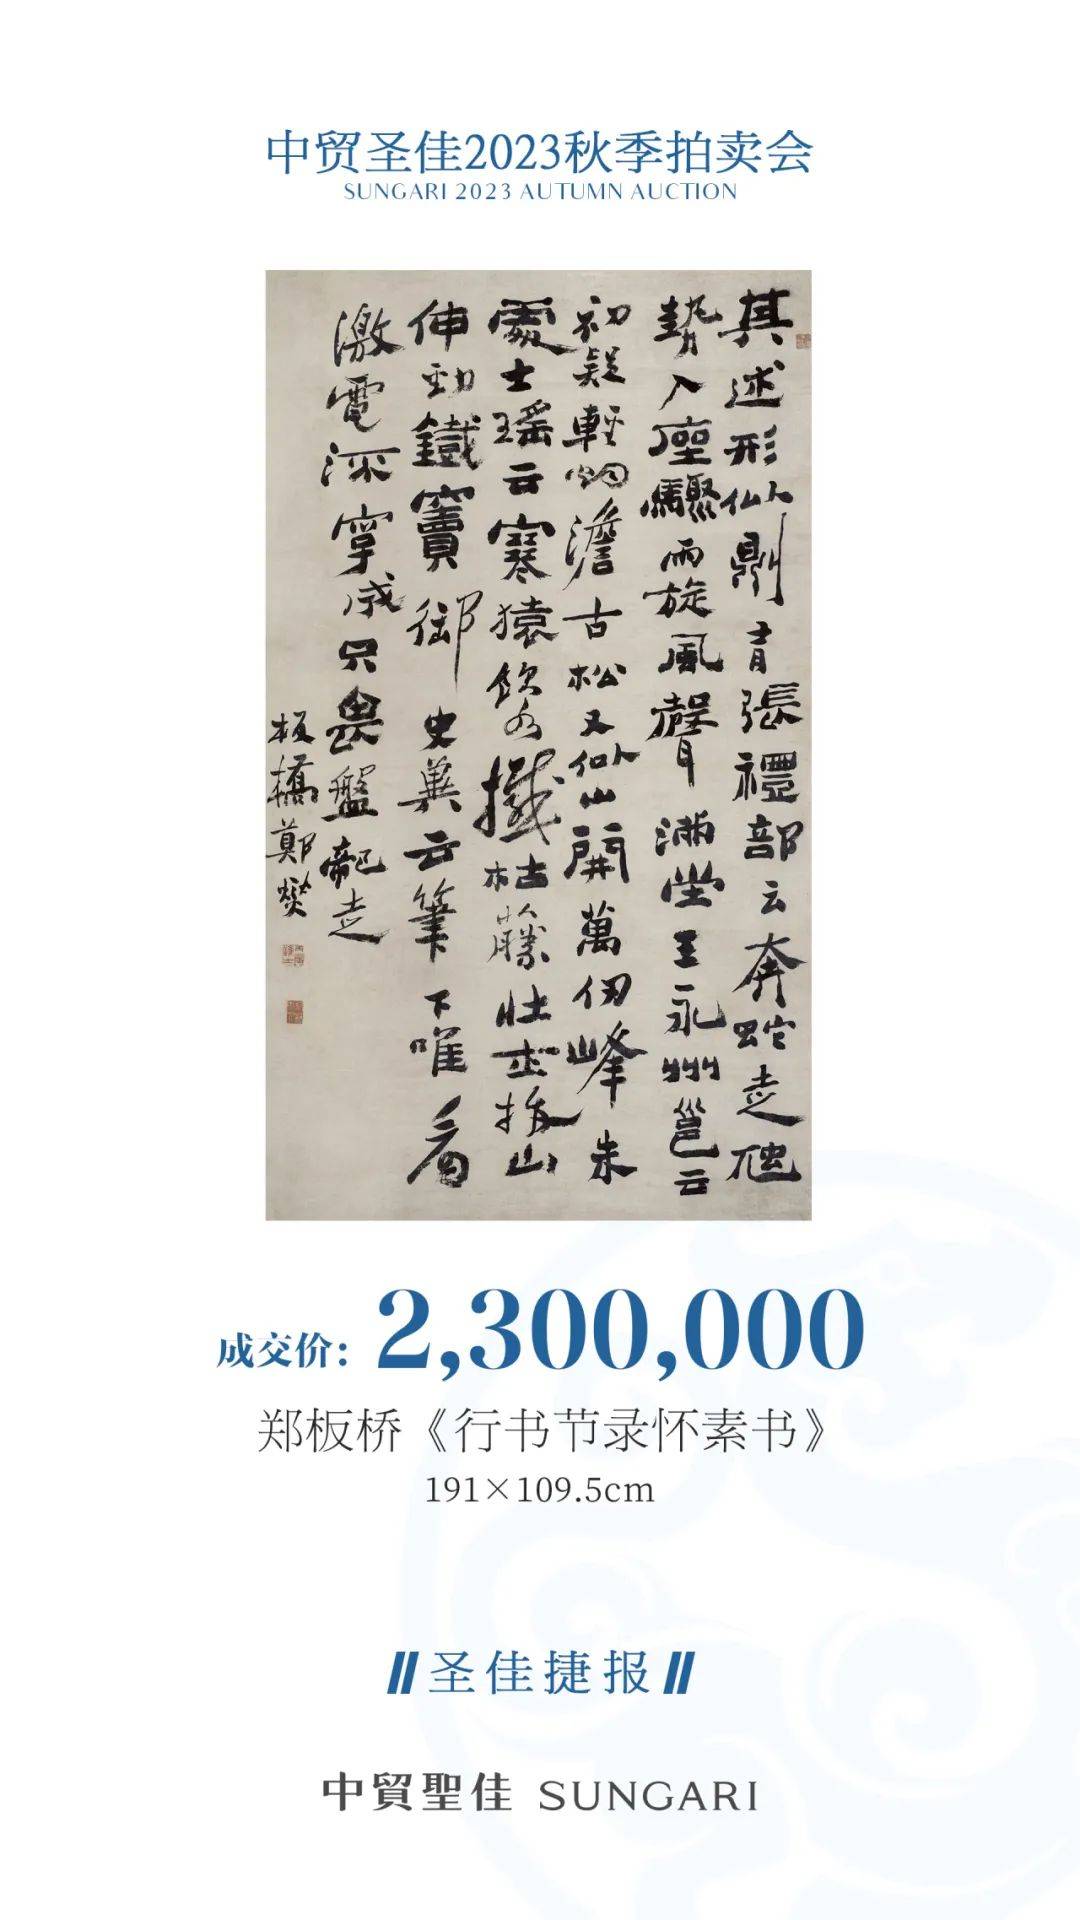 中贸圣佳2023秋季拍卖会
SUNGARI 2023 AUTUMN AUCTION
其述形似則有張禮部云奔蛇走虺
勢入座驟雨旋風聲滿堂王永州邕云
初疑輕烟澹古松又似山開萬仞峰朱
處士瑶云寒猿飲水撼枯藤壯士拔山
伸勁鐵竇御史冀云筆下唯看
激電流字成只畏盤龍走
板橋鄭燮
成交价：2,300,000
郑板桥《行书节录怀素书》
191×109.5cm
圣佳捷报
中貿聖佳 SUNGARI